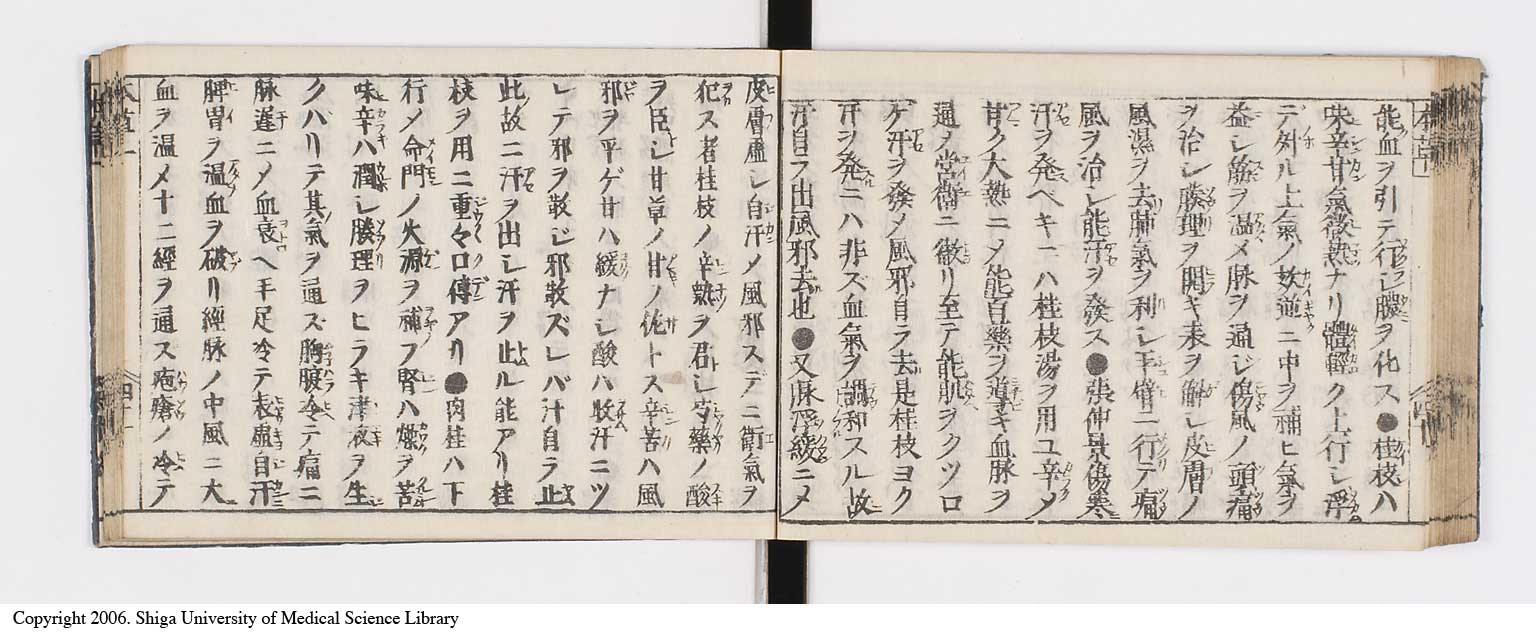 能血ヲ引テ行シ膿ヲ化ス●桂枝ハ
味辛甘氣微熱ナリ體輕ク上行シ浮
デ舛ル上氣ノ妶逆ニ中ヲ補ヒ氣ヲ
益シ筋ヲ温メ脉ヲ通じ傷風ノ頭痛
ヲ治シ腠理ヲ開キ表ヲ解シ皮膚ノ
風濕ヲ去肺氣ヲ利シ手臂ニ行テ痛
風ヲ治シ能汗ヲ發ス●張仲景傷寒
汗ヲ発ベキニハ桂枝湯ヲ用ユ辛メ
甘ク大熱ニメ能百藥ヲ導キ血脉ヲ
通メ営衛ニ徹リ至テ能肌ヲクツロ
ゲ汗ヲ發メ風邪自ラ去是桂枝ヨク
汗ヲ発ニハ非ズ血氣ヲ調和スル故
汗自ラ出風邪去也●又脉浮緩ニメ
皮膚虚シ自汗メ風邪スデニ衛氣ヲ
犯ス者桂枝ノ辛熱ヲ君シ芍藥ノ酸
ヲ臣シ甘草ノ甘ノ佐トス辛苦ハ風
邪ヲ平ゲ甘ハ緩ナシ酸ハ收汗ニツ
レテ邪ヲ散じ邪散ズレバ汁自ラ止
此故ニ汗ヲ出シ汗ヲ止ル能アリ桂
枝ヲ用ニ重々口傳アリ●肉桂ハ下
行メ命門ノ火源ヲ補フ腎ハ燥ヲ苦
味辛ハ潤シ腠理ヲヒラキ津液ヲ生
クバリテ其氣ヲ通ズ胸腹冷テ痛ニ
脉遅ニメ血衰ヘ手足冷テ表虚自汗
脾胃ヲ温血ヲ破リ經脉ノ中風ニ大
血ヲ温メ十二經ヲ通ス疱瘡ノ冷テ
Copyright 2006. Shiga University of Medical Science Library